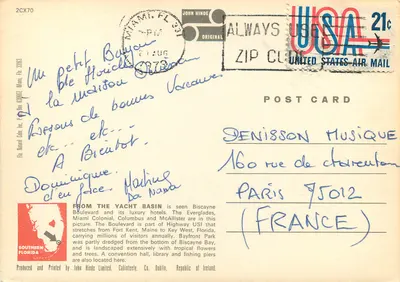 2CX70
MIAMI, FL 331
PM
21 AUG
1973
JOHN HINDE
ORIGINAL
ALWAYS USE
ZIP CODE
USA 21c
UNITED STATES AIR MAIL
Un petit Bonjour
de Floride
la maison
Passons de bonnes Vacances
etc... etc...
A Bientôt.
Dominique
d'en face Martine
POST CARD
DENISSON MUSIQUE
160 rue de charenton
PARIS 75012
(FRANCE)
FROM THE YACHT BASIN is seen Biscayne
Boulevard and its luxury hotels. The Everglades,
Miami Colonial, Columbus and McAllister are in this
picture. The Boulevard is part of Highway US1 that
stretches from Fort Kent, Maine to Key West, Florida,
carrying millions of visitors annually. Bayfront Park
was partly dredged from the bottom of Biscayne Bay,
and is landscaped extensively with tropical flowers
and trees. A convention hall, library and fishing piers
are also located here.
SOUTHERN
FLORIDA
Produced and Printed by John Hinde Limited, Cabinteely, Co. Dublin, Republic of Ireland.